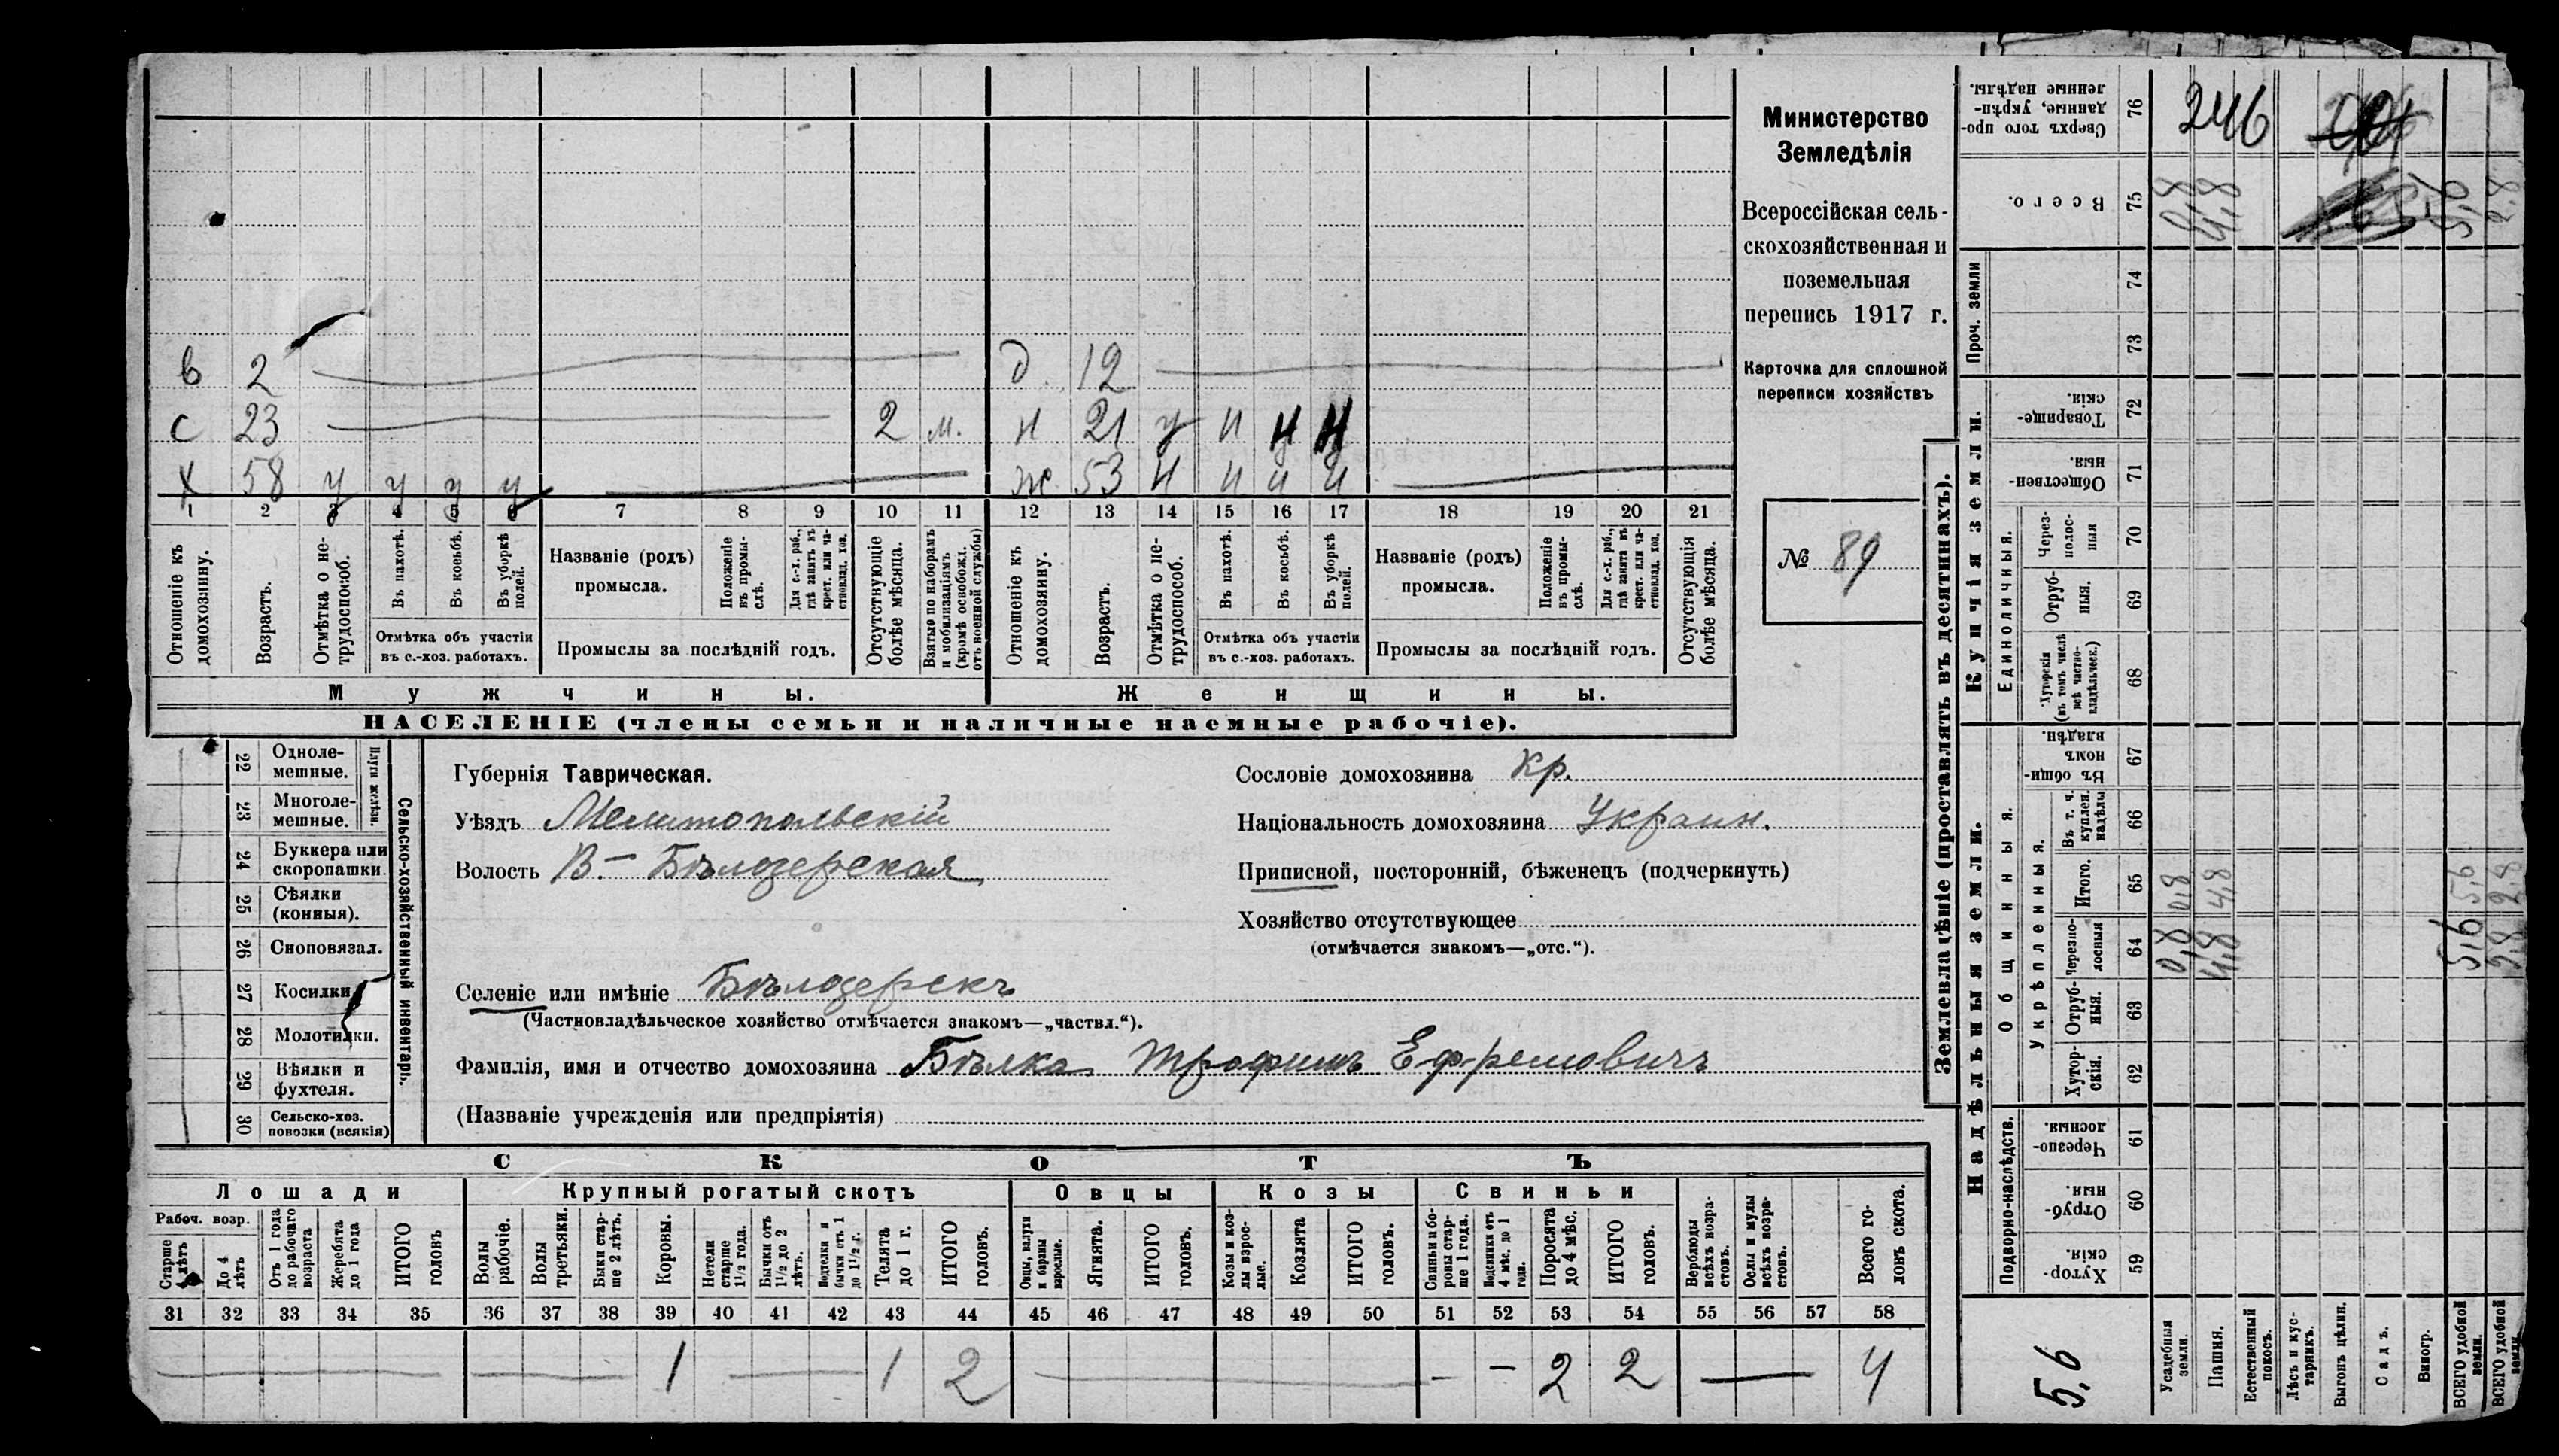 в 2 д. 12
с 23 2 м. н 21 у н н н
х 58 у у у у ж 53 н н н н
1 2 3 4 5 6 7 8 9 10 11 12 13 14 15 16 17 18 19 20 21
Отношеніе къ домохозяину.
Возрастъ.
Отмѣтка о не-трудоспособ.
Въ пахотѣ.
Въ косьбѣ.
Въ уборкѣ полей.
Отмѣтка объ участіи
въ с.-хоз. работахъ.
Названіе (родъ)
промысла.
Положеніе въ промы-слѣ.
Для с.-х. раб., гдѣ занятъ въ крест. или ча-стновлад. хоз.
Промыслы за послѣдній годъ.
Отсутствующіе болѣе мѣсяца.
Взятые по наборамъ и мобилизаціямъ (кромѣ освобожд. отъ военной службы)
Отношеніе къ домохозяину.
Возрастъ.
Отмѣтка о не-трудоспособ.
Въ пахотѣ.
Въ косьбѣ.
Въ уборкѣ полей.
Отмѣтка объ участіи
въ с.-хоз. работахъ.
Названіе (родъ)
промысла.
Положеніе въ промы-слѣ.
Для с.-х. раб., гдѣ занята въ крест. или ча-стновлад. хоз.
Промыслы за послѣдній годъ.
Отсутствующія болѣе мѣсяца.
Мужчины. Женщины.
НАСЕЛЕНІЕ (члены семьи и наличные наемные рабочіе).
Министерство
Земледѣлія
Всероссійская сель-
скохозяйственная и
поземельная
перепись 1917 г.
Карточка для сплошной
переписи хозяйствъ
№ 89
22 Одноле-мешные.
23 Многоле-мешные.
Плуги желѣзн.
24 Буккера или скоропашки
25 Сѣялки (конныя).
26 Сноповязал.
27 Косилки
28 Молотилки.
29 Вѣялки и фухтеля.
30 Сельско-хоз. повозки (всякія)
Сельско-хозяйственный инвентарь.
Губернія Таврическая.
Уѣздъ Мелитопольскій
Волость В- Бѣлозерская
Сословіе домохозяина Кр.
Національность домохозяина Украин.
Приписной, посторонній, бѣженецъ (подчеркнуть)
Хозяйство отсутствующее
(отмѣчается знакомъ—„отс.“).
Селеніе или имѣніе Бѣлозерскъ
(Частновладѣльческое хозяйство отмѣчается знакомъ—„частвл.“).
Фамилія, имя и отчество домохозяина Бѣлка Трофимъ Ефремовичъ
(Названіе учрежденія или предпріятія)
СКОТЪ
Лошади Крупный рогатый скотъ Овцы Козы Свиньи
Рабоч. возр.
Старше 4 лѣтъ
До 4 лѣтъ
Отъ 1 года до рабочаго возраста
Жеребята до 1 года
ИТОГО головъ
Волы рабочіе.
Волы третьяки.
Быки стар-ше 2 лѣтъ.
Коровы.
Нетели старше 1½ года.
Бычки отъ 1½ до 2 лѣтъ.
Подтелки и бычки отъ 1 до 1½ г.
Телята до 1 г.
ИТОГО головъ.
Овцы, валухи и бараны взрослые.
Ягнята.
ИТОГО головъ.
Козы и коз-лы взрос-лые.
Козлята
ИТОГО головъ.
Свиньи и бо-ровы стар-ше 1 года.
Подсвинки отъ 4 мѣс. до 1 года.
Поросята до 4 мѣс.
ИТОГО головъ.
Верблюды всѣхъ возра-стовъ.
Ослы и мулы всѣхъ возра-стовъ.
Всего го-ловъ скота.
31 32 33 34 35 36 37 38 39 40 41 42 43 44 45 46 47 48 49 50 51 52 53 54 55 56 57 58
1 1 2 - - 2 2 4
Землевладѣніе (проставлять въ десятинахъ).
Купчія земли.
Надѣльныя земли.
Сверхъ того про-данные, укрѣп-ленные надѣлы. 76 246
Всего. 75 0,8 4,8 5,6 2,8
Проч. земли 74
73
Товарище-скія 72
Обществен-ныя. 71
Единоличныя.
Через-полос-ныя 70
Отруб-ныя. 69
Хуторскія (въ томъ числѣ всѣ частно-владѣльческ.) 68
Общинныя.
Въ общи-номъ владѣн. 67
Укрѣпленныя.
Въ т. ч. куплен. надѣлы 66
Итого. 65 0,8 4,8 5,6 2,8
Черезпо-лосныя 64 0,8 4,8 5,6 2,8
Отруб-ныя. 63
Хутор-скія. 62
Подворно-наслѣдств.
Черезпо-лосныя. 61
Отруб-ныя. 60
Хутор-скія. 59
5,6
Усадебныя земли.
Пашня.
Естественный покосъ.
Лѣсъ и кус-тарникъ.
Выгонъ цѣлин.
Садъ.
Виногр.
ВСЕГО удобной земли.
ВСЕГО удобной земли.